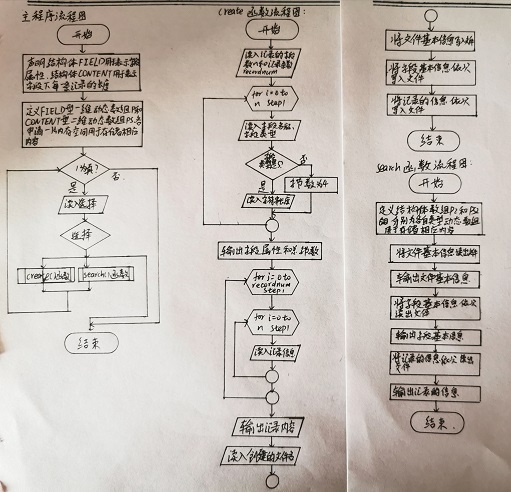 主程序流程图
开始
声明结构体FIELD用来表示字段
属性,结构体CONTENT用于表示
字段下每条记录的长度
定义FIELD型一维动态数组P和
CONTENT型二维动态数组PS,各
申请一块内存空间用于存储相应
内容
1为真?
否
是
读入选择
选择
create()函数
search()函数
结束
create函数流程图:
开始
读入记录的字段
数n和记录条数
recordnum
for i=0 to
n step1
读入字段名称,
字段类型
否
是
字节数为4
读入字符长度
输出字段属性和总字节数
for j=0 to
recordnum
step1
for i=0 to
n step1
读入记录信息
输出记录内容
读入创建的文件名
将文件基本信息写入文件
将字段基本信息依次
写入文件
将记录的信息依次
写入文件
结束
search函数流程图:
开始
定义结构体数组P2和PS2
分别为各自类型动态数组
用于存储相应内容
将文件基本信息读出文件
输出文件基本信息
将字段基本信息依次
读出文件
输出字段基本信息
将记录的信息依次读出
文件
输出记录的信息
结束